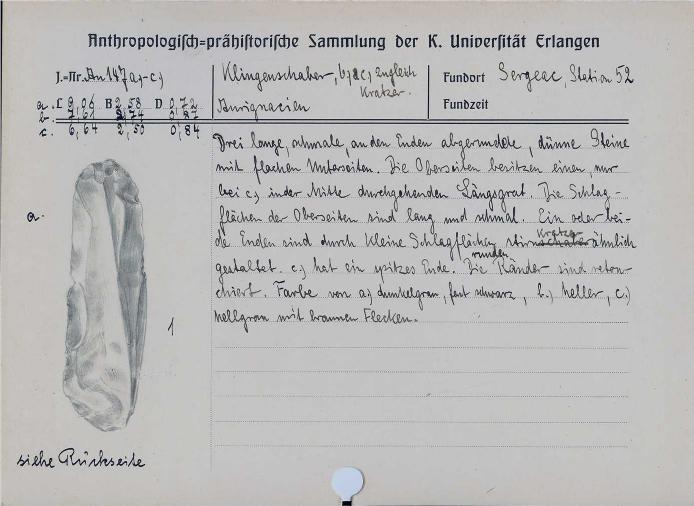 Anthropologisch=prähistorische Sammlung der K. Universität Erlangen
J.=Nr. An 147 a,-c,)
Klingenschaber, b,) & c,) zugleich Kratzer.
Aurignacien
Fundort Sergeac, Station 52
Fundzeit
a. L 9,06 B 2,58 D 0,72
b. 7,61 2,74 0,87
c. 6,64 2,50 0,84
Drei lange, schmale, an den Enden abgerundete, dünne Steine
mit flachen Unterseiten. Die Oberseiten besitzen einen, nur
bei c,) in der Mitte durchgehenden Längsgrat. Die Schlag-
flächen der Oberseiten sind lang und schmal. Ein oder bei-
de Enden sind durch kleine Schlagflächen stirnschaber Kratzer ähnlich
gestaltet. c,) hat ein spitzes Ende. Die runden Ränder sind retou-
chiert. Farbe von a,) dunkelgrau, fast schwarz, b.) heller, c.)
hellgrau mit braunen Flecken.
a.
1
siehe Rückseite